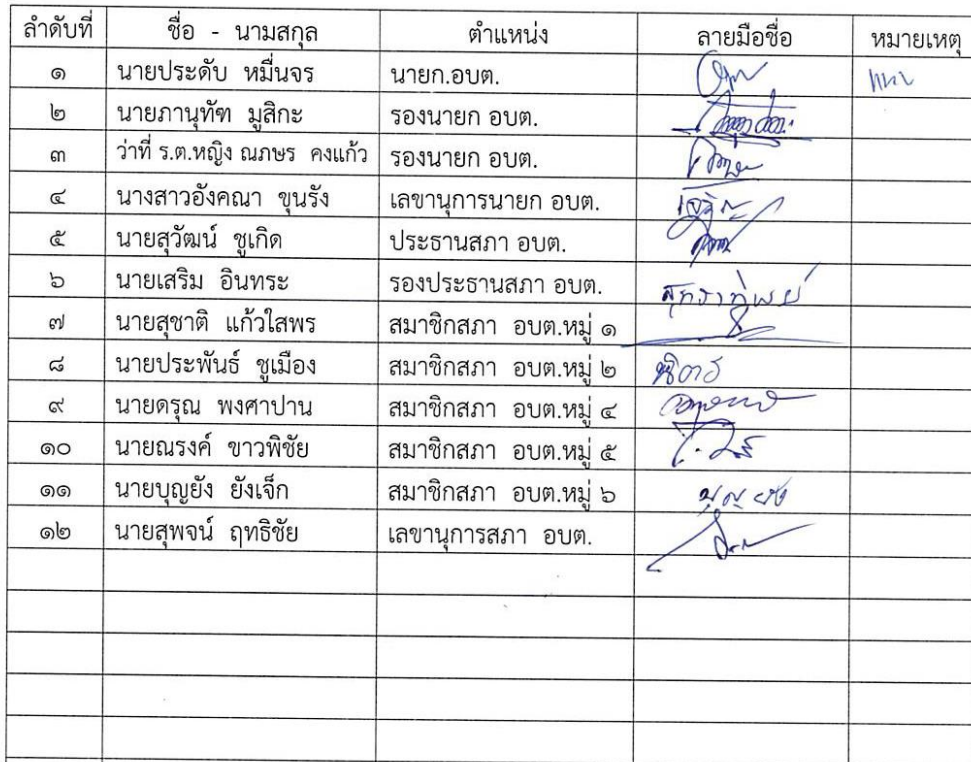 ลำดับที่ ชื่อ - นามสกุล ตำแหน่ง ลายมือชื่อ หมายเหตุ
๑ นายประดับ หมื่นจร นายก.อบต. แทน
๒ นายภานุทัฑ มูสิกะ รองนายก อบต.
๓ ว่าที่ ร.ต.หญิง ณภษร คงแก้ว รองนายก อบต.
๔ นางสาวอังคณา ขุนรัง เลขานุการนายก อบต.
๕ นายสุวัฒน์ ชูเกิด ประธานสภา อบต.
๖ นายเสริม อินทระ รองประธานสภา อบต.
๗ นายสุชาติ แก้วใสพร สมาชิกสภา อบต.หมู่ ๑
๘ นายประพันธ์ ชูเมือง สมาชิกสภา อบต.หมู่ ๒
๙ นายดรุณ พงศาปาน สมาชิกสภา อบต.หมู่ ๔
๑๐ นายณรงค์ ขาวพิชัย สมาชิกสภา อบต.หมู่ ๕
๑๑ นายบุญยัง ยังเจ็ก สมาชิกสภา อบต.หมู่ ๖ บุญยัง
๑๒ นายสุพจน์ ฤทธิชัย เลขานุการสภา อบต.